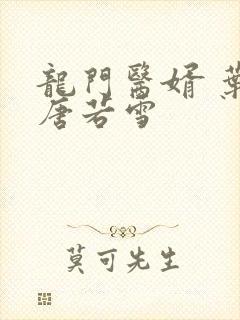 龍門醫婿 葉
唐若雪
莫可先生